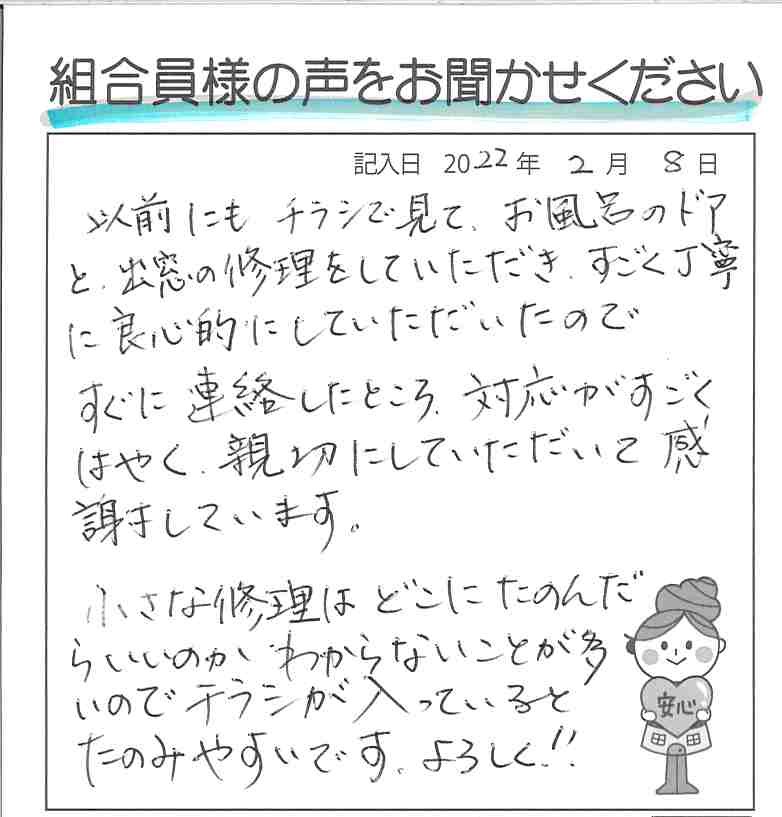 組合員様の声をお聞かせください
記入日 2022年 2月 8日
以前にも チラシで見て、お風呂のドア
と、出窓の修理をしていただき、すごく丁寧
に良心的にしていただいたので
すぐに連絡したところ、対応がすごく
はやく、親切にしていただいて感
謝しています。
小さな修理は どこに たのんだ
らいいのか わからないことが多
いのでチラシが入っていると
たのみやすいです、よろしく!!
安心